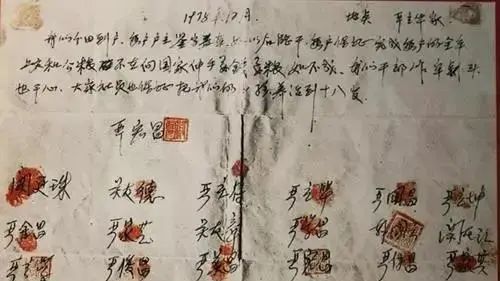 1978年12月. 地点 严立华家
我们分田到户，每户户主签字盖章，如以后能干，每户保证完成每户的全年
上交和公粮，不在向国家伸手要钱要粮，如不成，我们干部作牢刹头
也干心，大家社员也保证把我们的小孩养活到十八岁
严宏昌
关廷珠 关友德 严立付 严立华 严国昌 严立坤
严金昌 严家芝 关友章 严学昌 韩国云 关友江
严立学 严俊昌 严美昌 严付昌